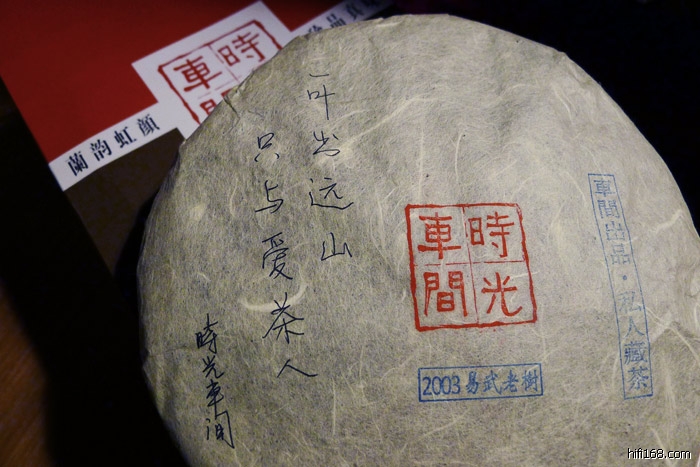 蘭韵虹顏
時
車間
一叶出远山
只与爱茶人
時光車间
時光
車間
2003易武老樹
車間出品·私人藏茶
hifi168.com